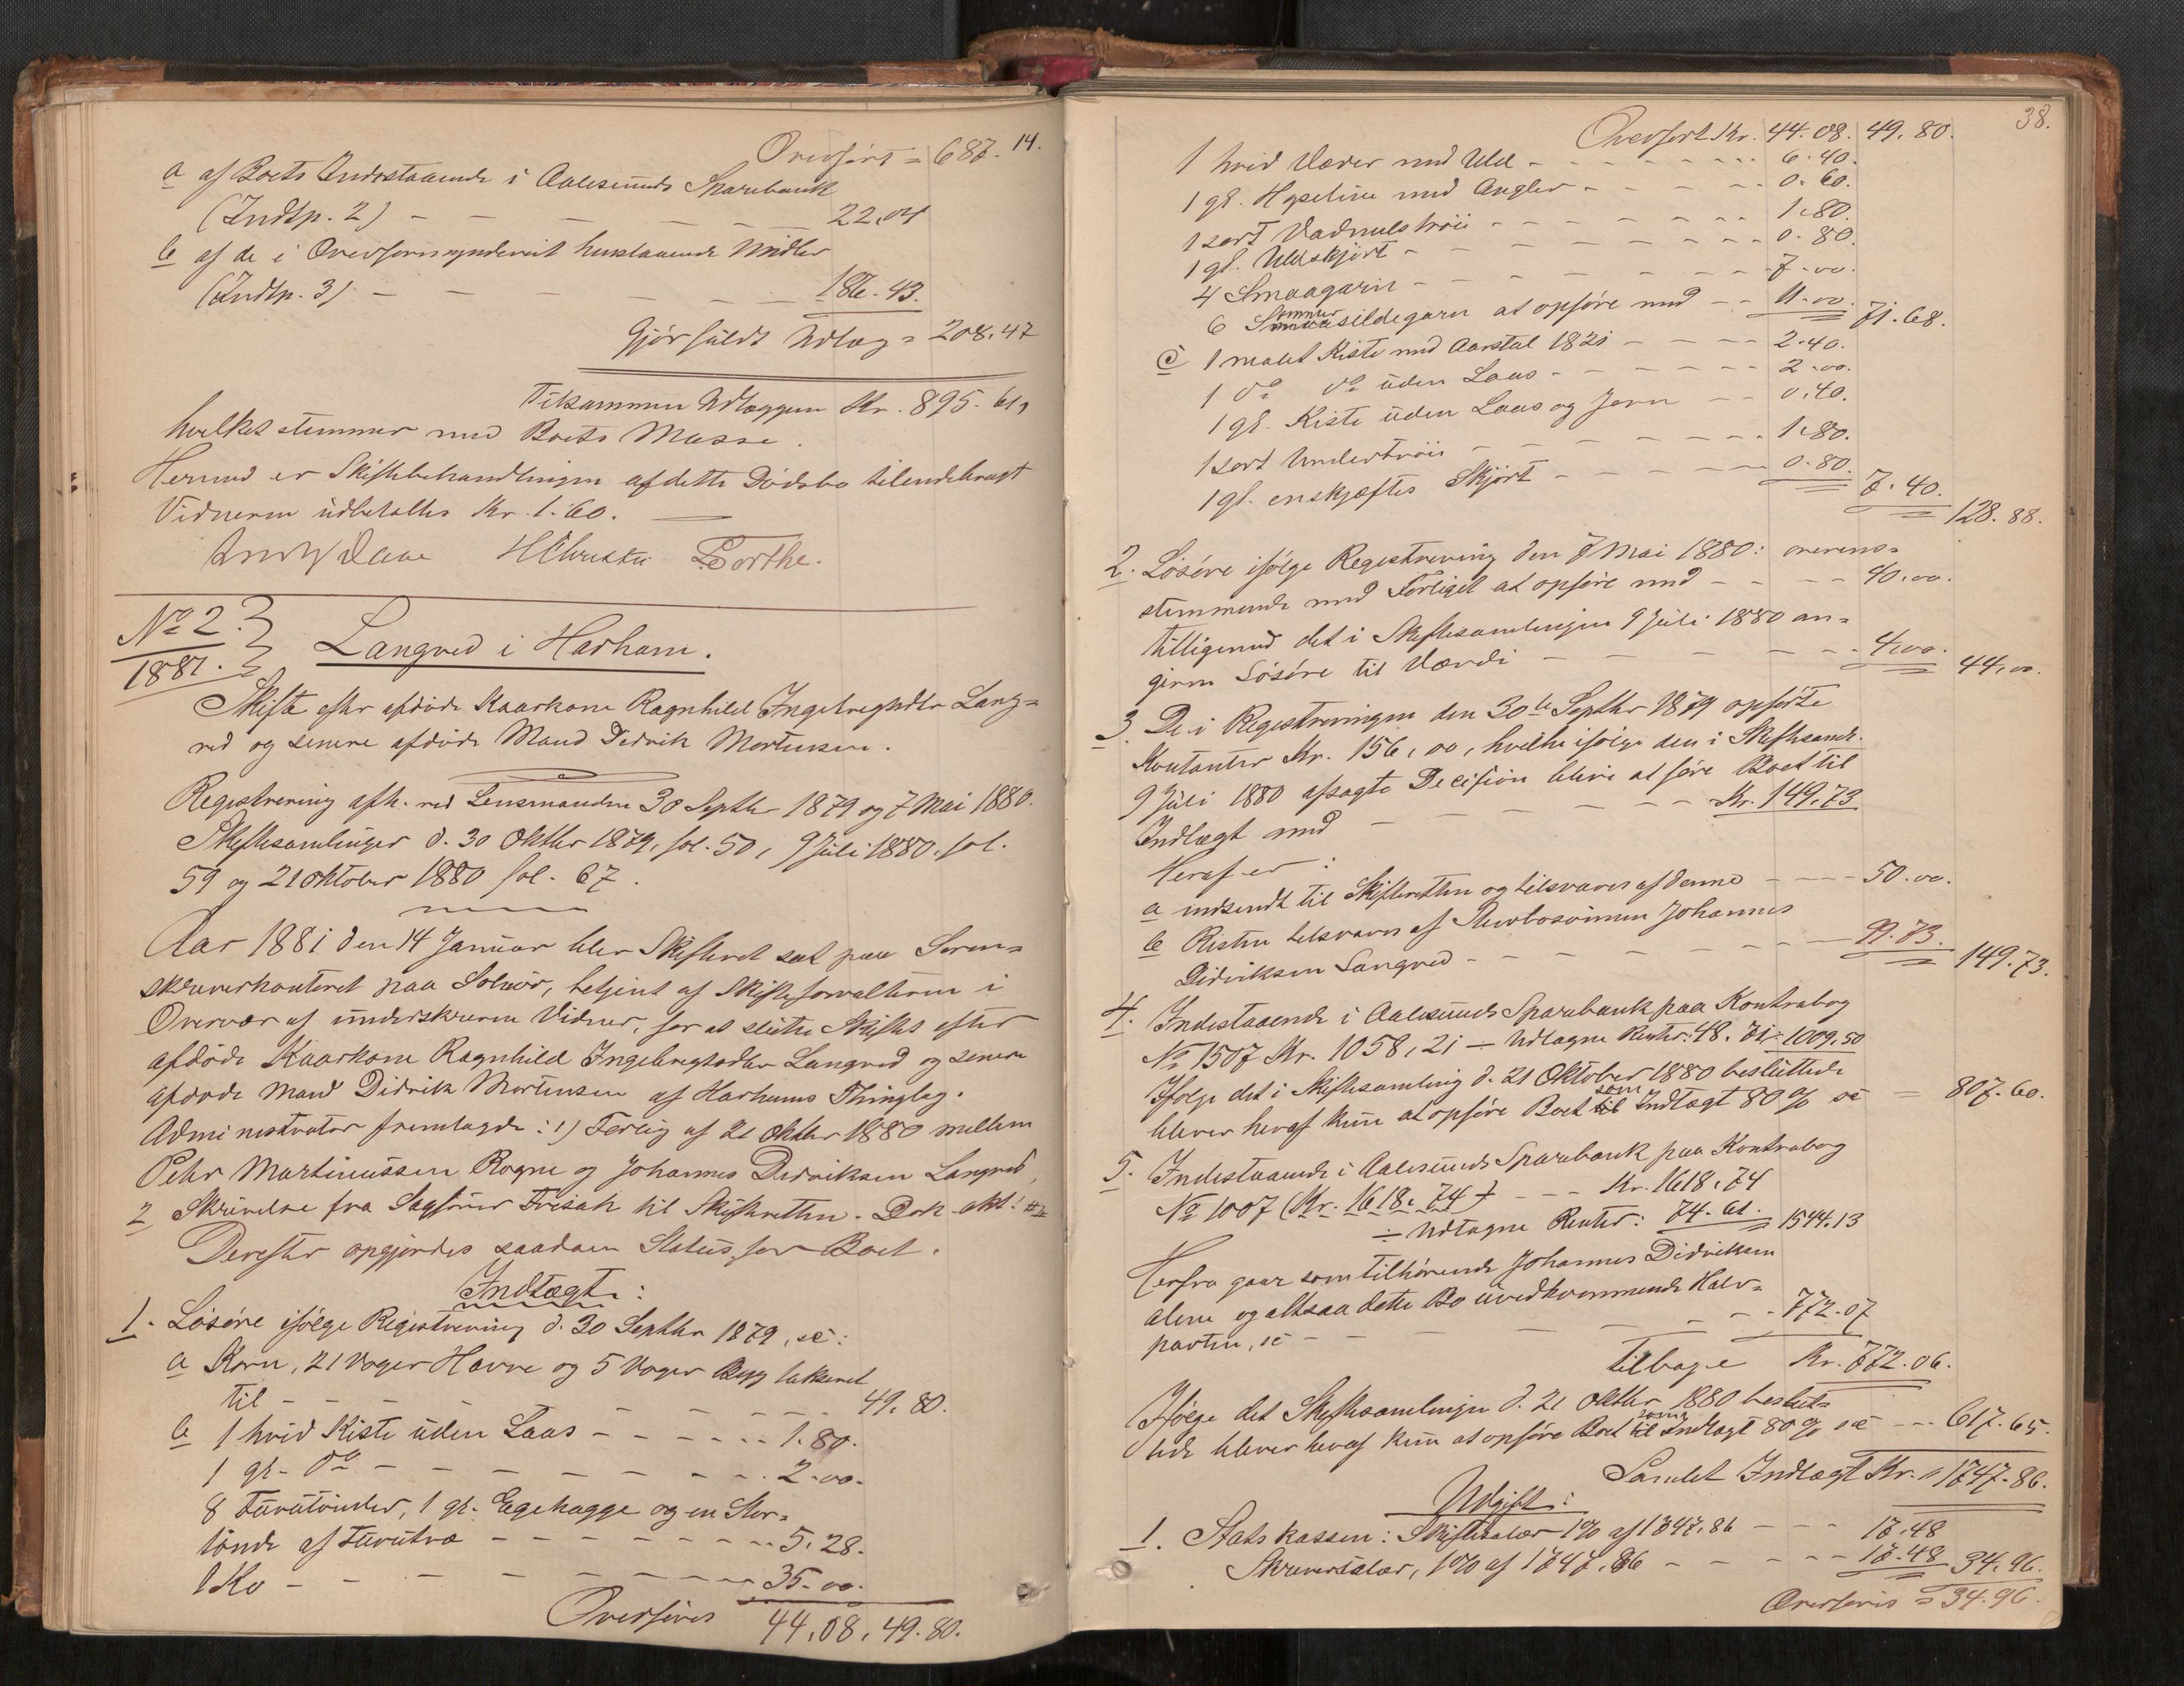 Overført = 687. 14.
a af Boets Indestaaende i Aalesunds Sparebank
(Indtp. 2) - - - - - 22,04
b af de i Overformynderiet henstaaende Midler
(Indtp. 3) - - - - - 186.43.
Gjør fuldt Udlæg = 208.47
Tilsammen Udlæggene Kr. 895.61,
hvilket stemmer med Boets Masse.
Hermed er Skiftebehandlingen af dette Dødsbo tilendebragt
Vidnerne udbetaltes Kr. 1.60.
No 2.
1881.
Langved i Harham.
Skifte efter afdøde Kaarkone Ragnhild Ingebregtsdtr Lang=
ved og senere afdøde Mand Didrik Mortensen.
Registrering afh. ved Lensmanden 30 Septbr 1879 og 7 Mai 1880.
Skiftesamlinger d. 30 Oktbr 1879, fol. 50, 9 Juli 1880. fol.
59 og 21 Oktober 1880 fol. 67.
Aar 1881 den 14 Januar blev Skifteret sat paa Soren=
skriverkontoret paa Solnør, betjent af Skifteforvalteren i
Overvær af underskrevne Vidner, for at slutte Skiftet efter
afdøde Kaarkone Ragnhild Ingebregtsdtr Langved og senere
afdøde Mand Didrik Mortensen af Harhams Thinglag.
Administrator fremlagde: 1) Forlig af 21 Oktbr 1880 mellem
Peter Martinussen Rogne og Johannes Didriksen Langved,
2 Skrivelse fra Sagfører Frisak til Skifteretten. Dok. akt:
Derefter opgjordes saadan Status for Boet.
Indtægt:
1. Løsøre ifølge Registrering d. 30 Septbr 1879, se:
a Korn, 21 Voger Havre og 5 Voger Byg takseret
til - - - - - - 49.80.
b 1 hvid Kiste uden Laas - - - - - 1.80.
1 gl. do - - - - - - 2.00.
8 Furutønder, 1 gl. Egehagge og en Stor=
tønde af Furutræ - - - - - 5.28.
1 Ko - - - - - - 35.00.
Overføres 44,08, 49.80.
38.
Overført Kr. 44.08. 49.80.
1 hvid Væder med Uld - - - - 6.40.
1 gl. Hyseline med Angler - - - - 0.60.
1 sort Vadmelstrøie - - - - 1.80.
1 gl. Uldskjort - - - - 0.80.
4 Smaagarn - - - - 7.00.
6 Sommersildegarn at opføre med - - 11.00. 71.68.
c 1 malet Kiste med Aarstal 1821 - - - 2.40.
1 do do uden Laas - - - - 2.00.
1 gl. Kiste uden Laas og Jern - - 0.40.
1 sort Undertrøie - - - - 1.80.
1 gl. enskjæftes Skjørt - - - - 0.80. 7.40.
128.88.
2. Løsøre ifølge Registrering den 7 Mai 1880: overens=
stemmende med Forliget at opføre med - - - 40.00.
tilligemed det i Skiftesamlingen 9 Juli 1880 an=
givne Løsøre til Værdi - - - - 4,00. 44,00.
3. De i Registreringen den 30te Septbr 1879 opførte
Kontanter Kr. 156,00, hvilke ifølge den i Skiftesaml.
9 Juli 1880 afsagte Decision blive at føre Boet til
Indtægt med - - - - Kr. 149.73
Heraf er:
a indsendt til Skifteretten og tilsvares af denne - - - 50.00.
b Resten tilsvares af Sterbosønnen Johannes
Didriksen Langved - - - - 99.73. 149.73.
4. Indestaaende i Aalesunds Sparebank paa Kontrabog
No 1507 Kr. 1058,21 ÷ Udtagne Renter: 48.71 = 1009,50
Ifølge det i Skiftesamling d. 21 Oktober 1880 besluttede
bliver heraf kun at opføre Boet som Indtægt 80 % = 807.60.
5. Indestaaende i Aalesunds Sparebank paa Kontrabog
No 1007 (Kr. 1618.74) - - - Kr. 1618.74
÷ Udtagne Renter: 74.61. 1544.13
Herfra gaar som tilhørende Johannes Didriksen
alene og altsaa dette Bo uvedkommende Halv=
parten, se - - - - 772.07
tilbage Kr. 772.06.
Ifølge det Skiftesamlingen d. 21 Oktbr 1880 beslut=
tede bliver heraf kun at opføre Boet som Indtægt 80 % se - - 617.65.
Samlet Indtægt Kr. 1747.86.
Udgift:
1. Statskassen: Skiftesalær 1% af 1747.86 - - - 17.48
Skriversalær, 1% af 1747.86 - - - - 17.48 34.96.
Overføres = 34.96.